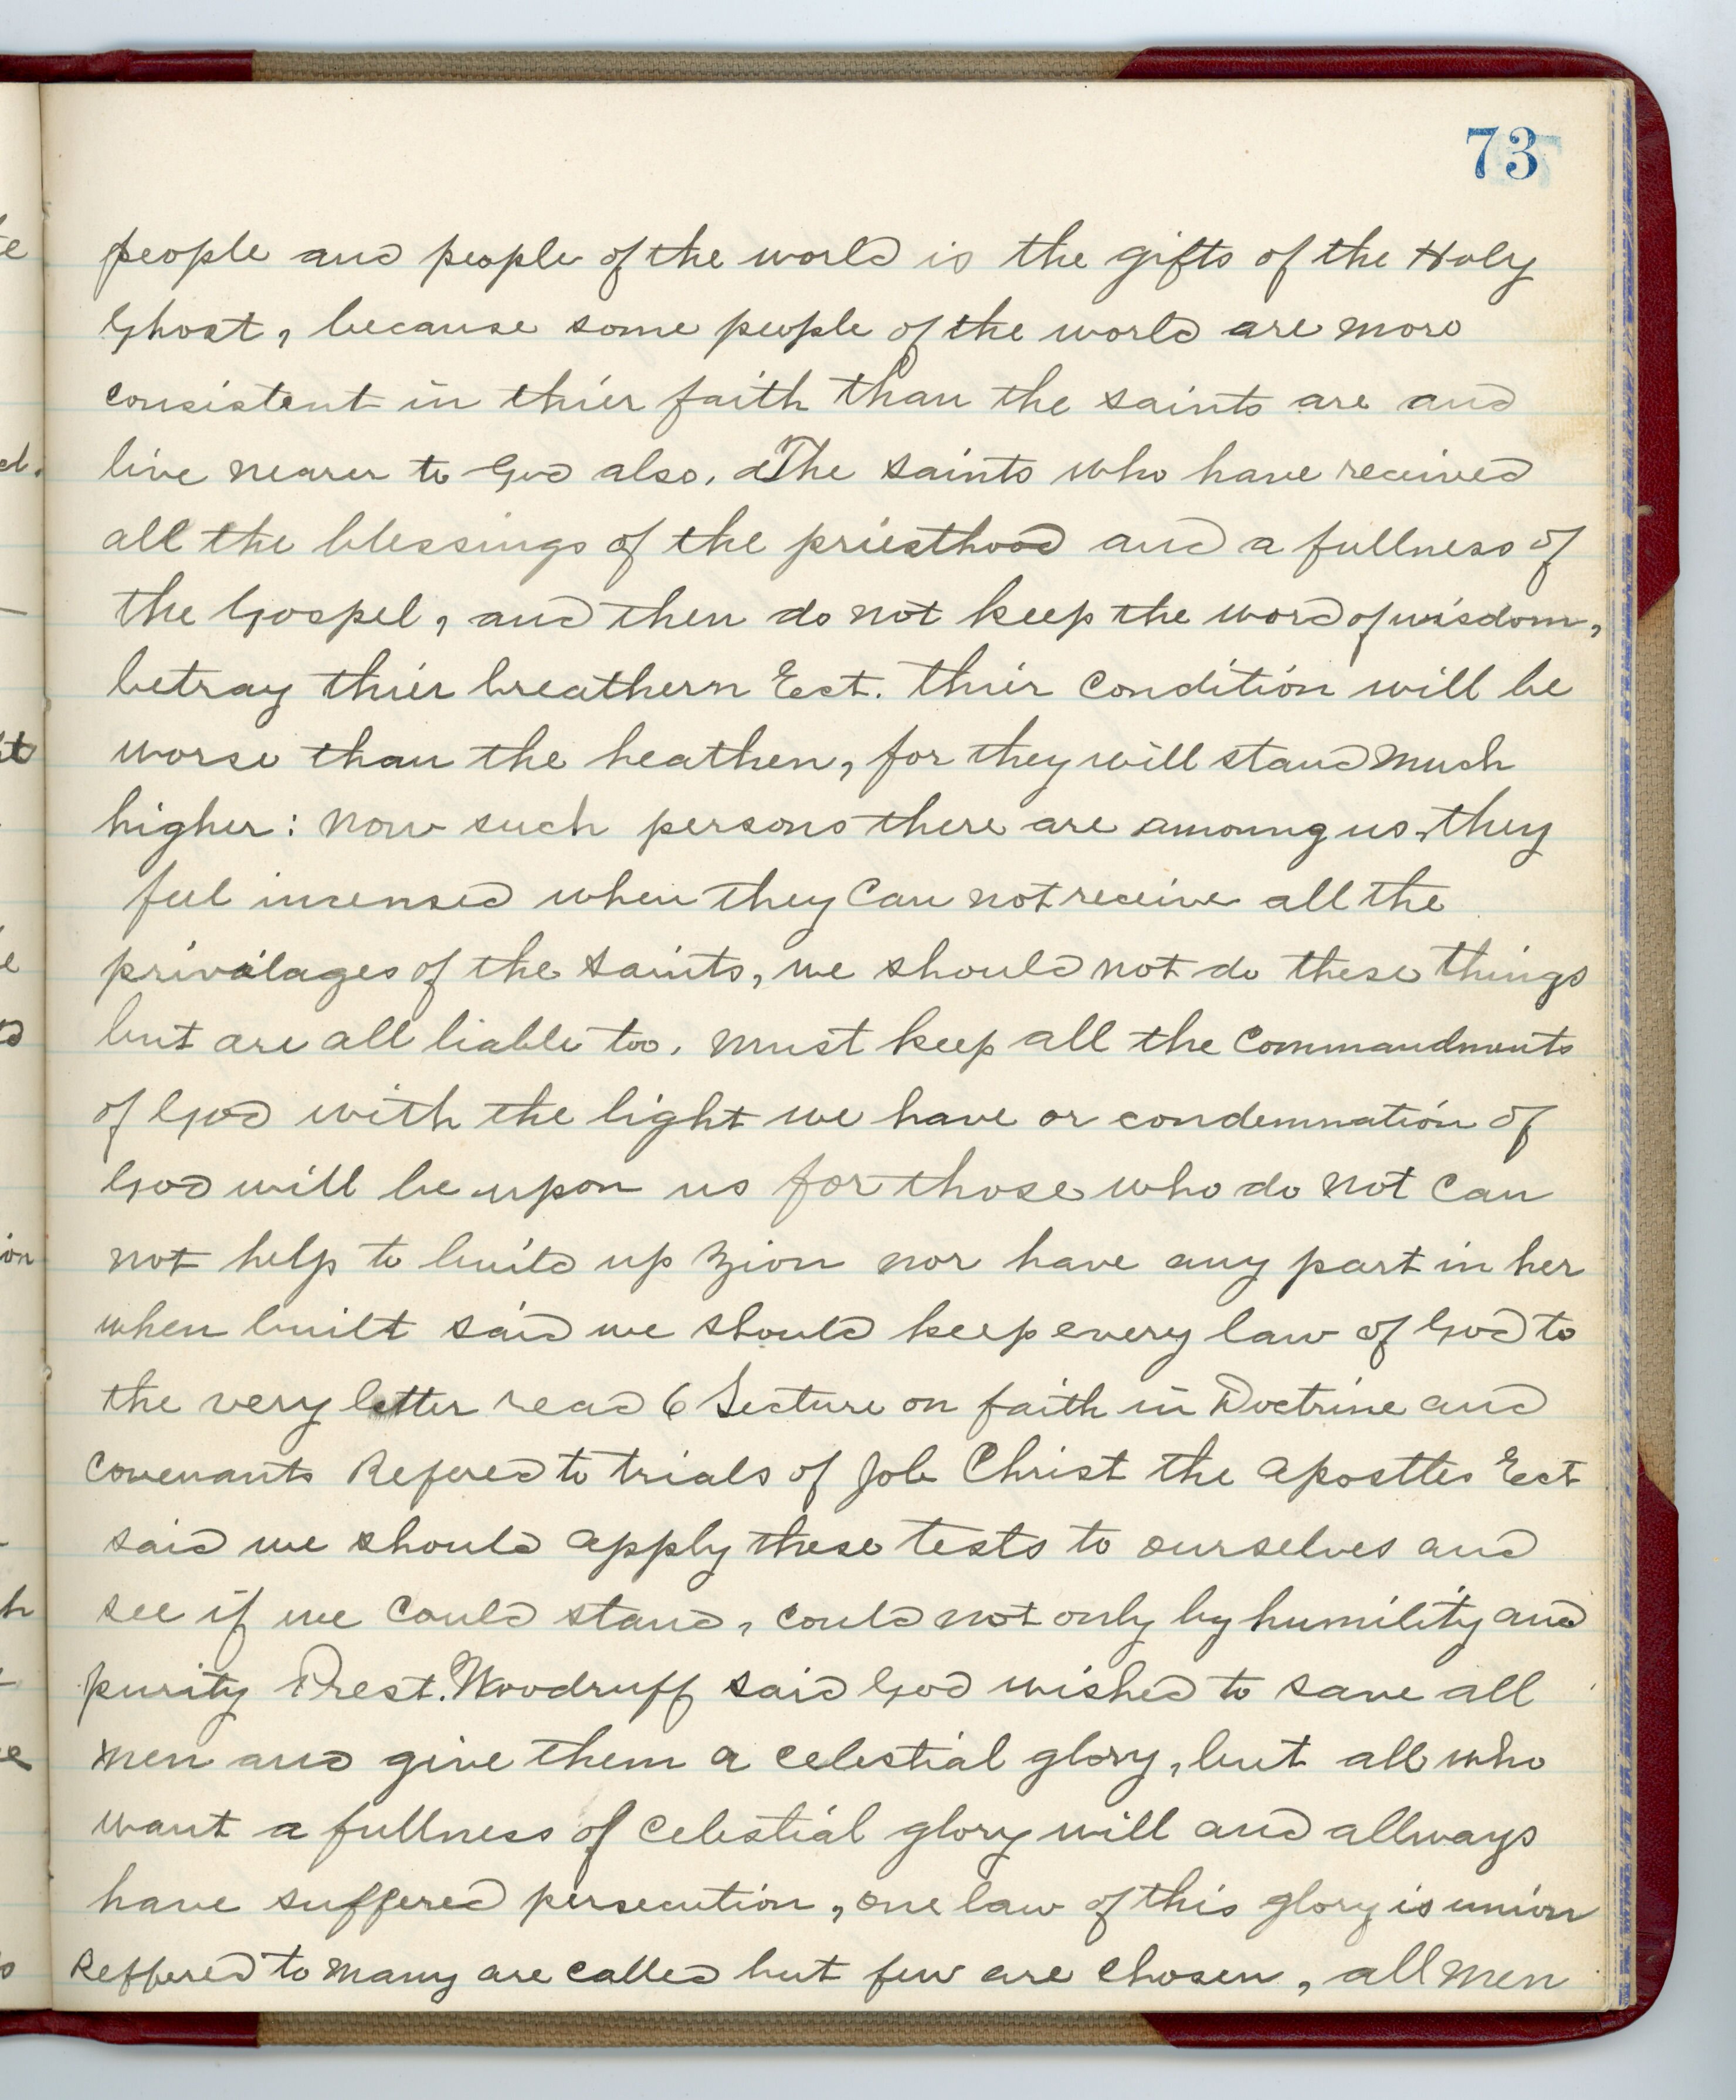 73
people and people of the world is the gifts of the Holy
Ghost, because some people of the world are more
consistent in thier faith than the saints are and
live nearer to God also. The saints who have received
all the blessings of the priesthood and a fullness of
the Gospel, and then do not keep the word of wisdom,
betray thier breathern Ect. thier condition will be
worse than the heathen, for they will stand much
higher: now such persons there are amoung us. they
feel incensed when they can not receive all the
privilages of the saints, we should not do these things
but are all liable too. must keep all the commandments
of God with the light we have or condemnation of
God will be upon us for those who do not can
not help to build up Zion nor have any part in her
when built said we should keep every law of God to
the very letter read 6 Lecture on faith in Doctrine and
covenants Refered to trials of Job Christ the apostles Ect
said we should apply these tests to ourselves and
see if we could stand, could not only by humility and
purity Prest. Woodruff said God wished to save all
men and give them a celestial glory, but all who
want a fullness of celestial glory will and allways
have suffered persecution, one law of this glory is union
Reffered to many are called but few are chosen, all men